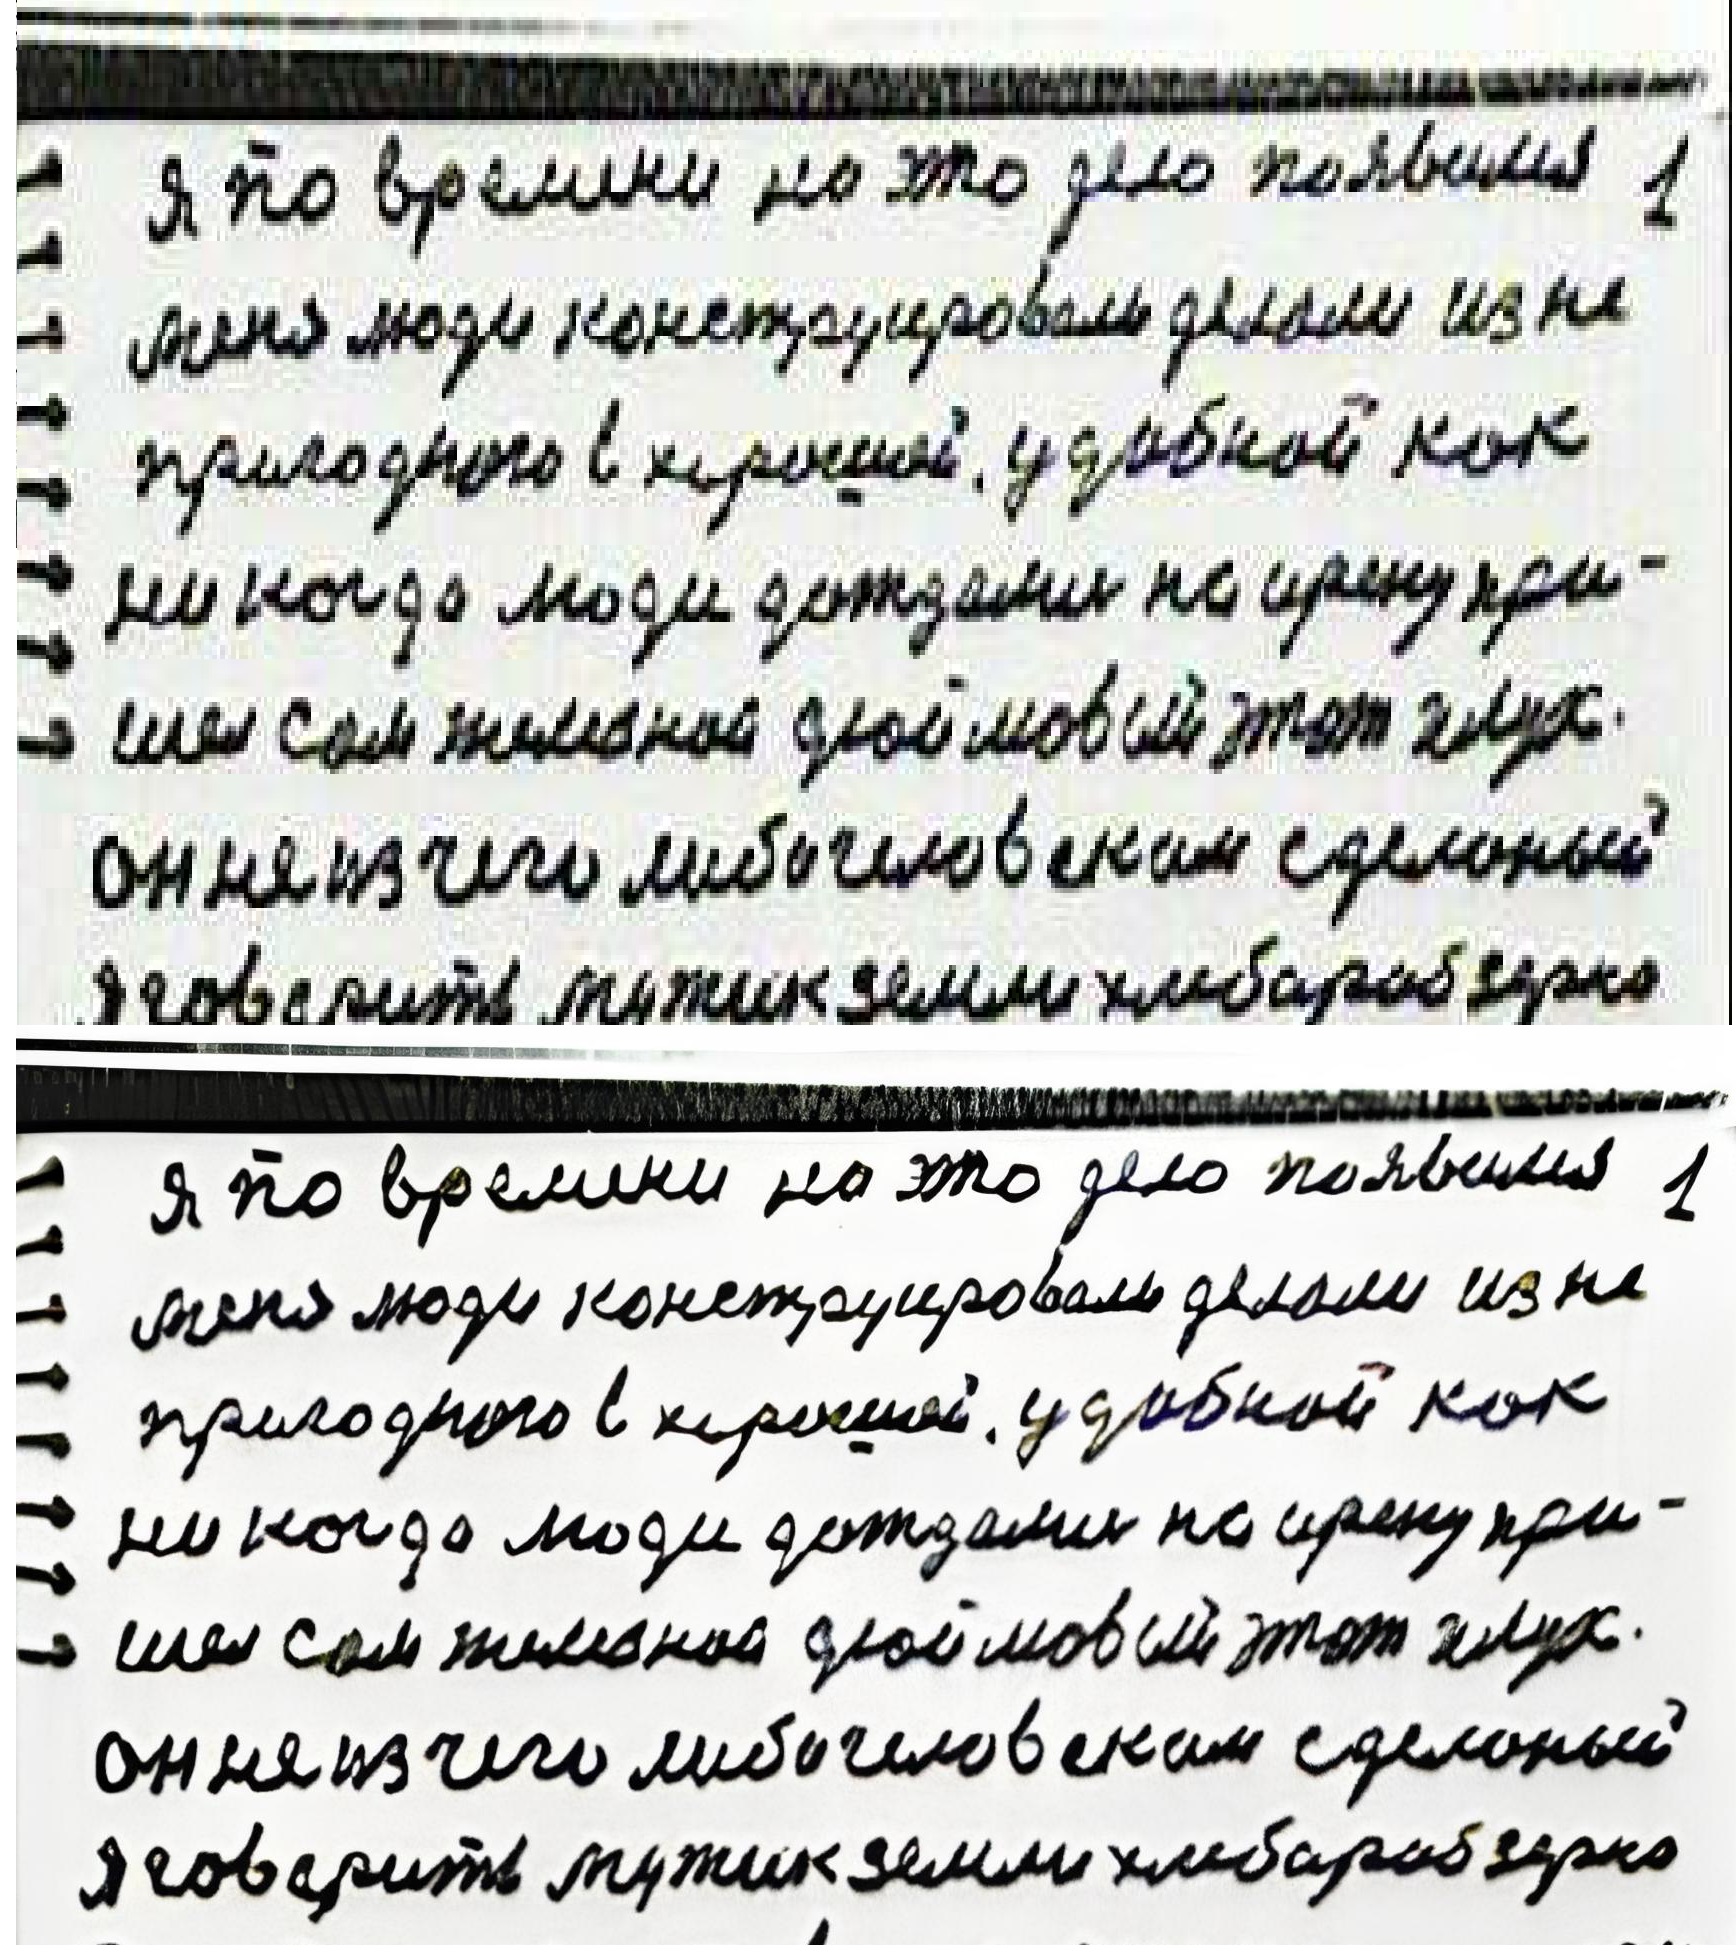 я по времени на это дело появился 1
меня люди конструировали делали из не
пригодного в хорошей. удобной как
ни когда люди дождались на арену при-
шел сам железной дюймовый этот плуг.
он ня из чего либо человеком сделоный
я говерить мужик земли хлебараб зерно
я по времени на это дело появился 1
меня люди конструировали делали из не
пригодного в хорошей. удобной как
ни когда люди дождались на арену при-
шел сам железной дюймовый этот плуг.
он ня из чего либо человеком сделоный
я говерить мужик земли хлебараб зерно